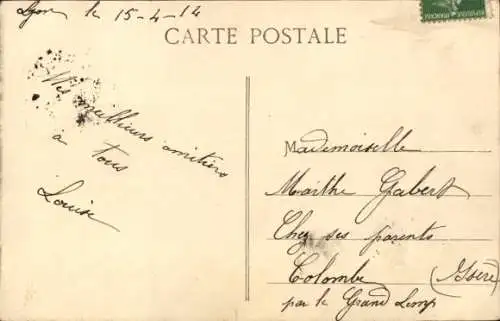 Lyon le 15-4-14
CARTE POSTALE
Mes meilleurs amitiers
à tous
Louise
Mademoiselle
Marthe Gabert
Chez ses parents
Colombe (Isère)
par le Grand Lemps